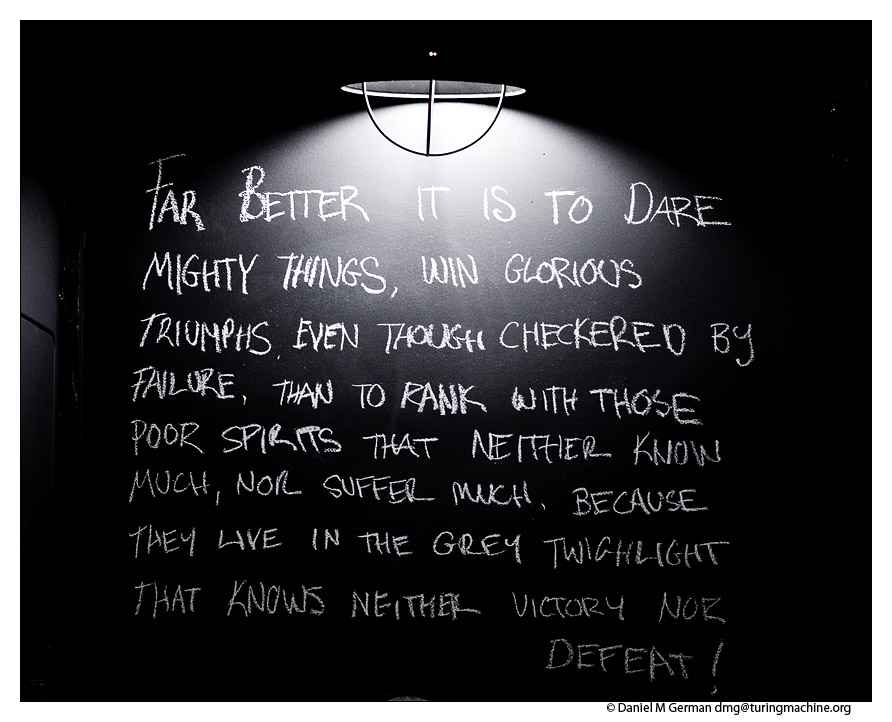 FAR BETTER IT IS TO DARE
MIGHTY THINGS, WIN GLORIOUS
TRIUMPHS, EVEN THOUGH CHECKERED BY
FAILURE, THAN TO RANK WITH THOSE
POOR SPIRITS THAT NEITHER KNOW
MUCH, NOR SUFFER MUCH, BECAUSE
THEY LIVE IN THE GREY TWIGHLIGHT
THAT KNOWS NEITHER VICTORY NOR
DEFEAT!
© Daniel M German dmg@turingmachine.org